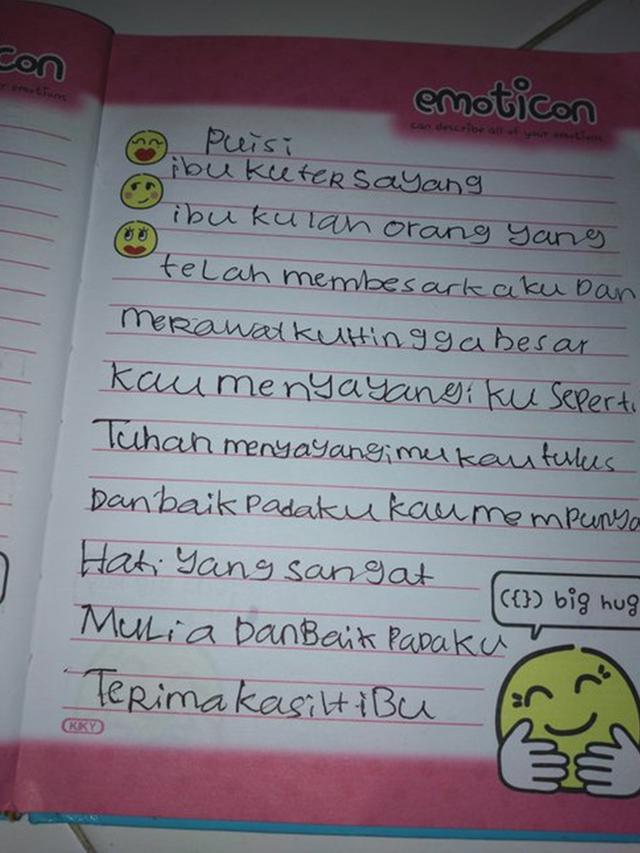 con
emotions
emoticon
can describe all of your emotions
Puisi
ibu kutersayang
ibu kulah orang yang
telah membesarkaku Dan
merawatkuHingga besar
kau menyayangi ku seperti
Tuhan menyayangimu kau tulus
Dan baik padaku kau mempunya
Hati yang sangat
({}) big hug
Mulia Dan Baik Padaku
Terima kasih iBu
KIKY